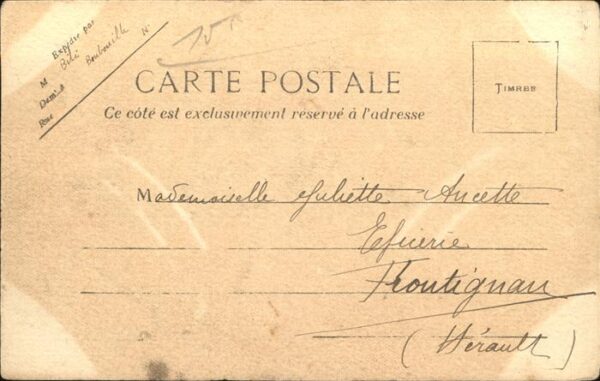 Expédié par
M
Demt à
Rue
N°
15
CARTE POSTALE
Ce côté est exclusivement reservé à l'adresse
TIMRES
Mademoiselle Juliette Aucette
Epicerie
Frontignan
(Hérault)